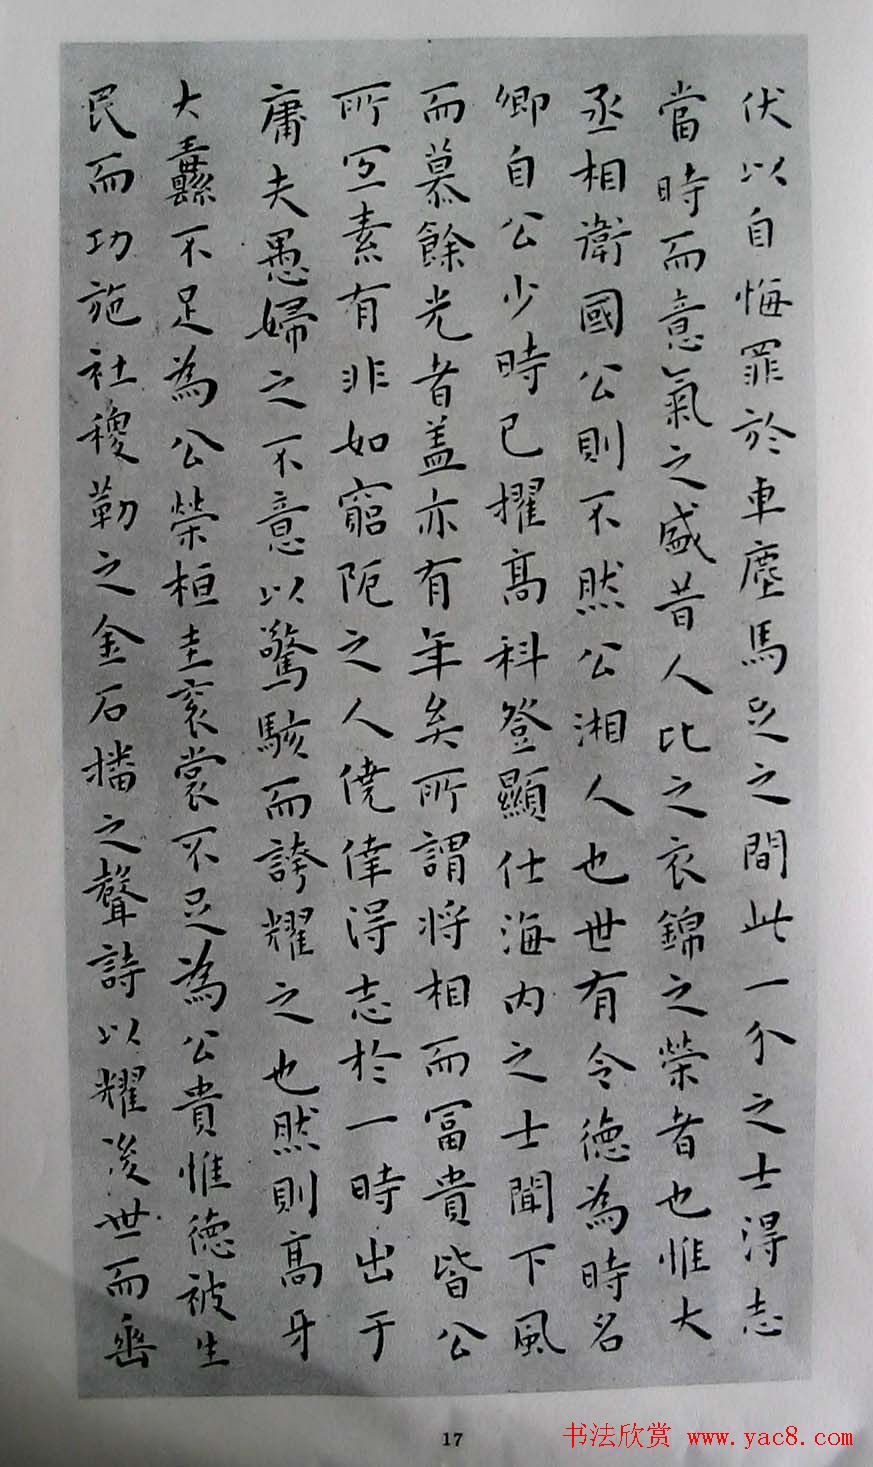 伏以自悔罪於車塵馬足之間此一介之士得志
當時而意氣之盛昔人比之衣錦之榮者也惟大
丞相衛國公則不然公湘人也世有令德為時名
卿自公少時已擢高科登顯仕海內之士聞下風
而慕餘光者蓋亦有年矣所謂將相而冨貴皆公
所冝素有非如窮阨之人僥倖得志於一時出于
庸夫愚婦之不意以驚駭而誇耀之也然則高牙
大纛不足為公榮桓圭衮裳不足為公貴惟德被生
民而功施社稷勒之金石播之聲詩以耀後世而垂
17
书法欣赏 www.yac8.com